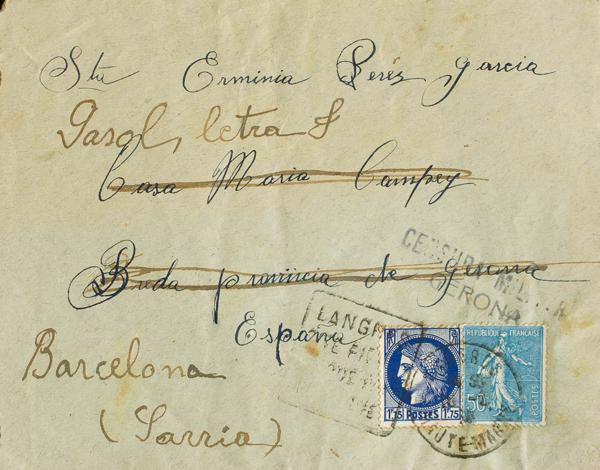 Sta Erminia Perez Garcia
Gasol, letra F
Casa Maria Campey
Breda provincia de Gerona
España
Barcelona
(Sarria)
CENSURA MILITAR
GERONA
LANGR
1,75 POSTES 1,75
REPUBLIQUE FRANÇAISE
50c POSTES
HTE-MARNE